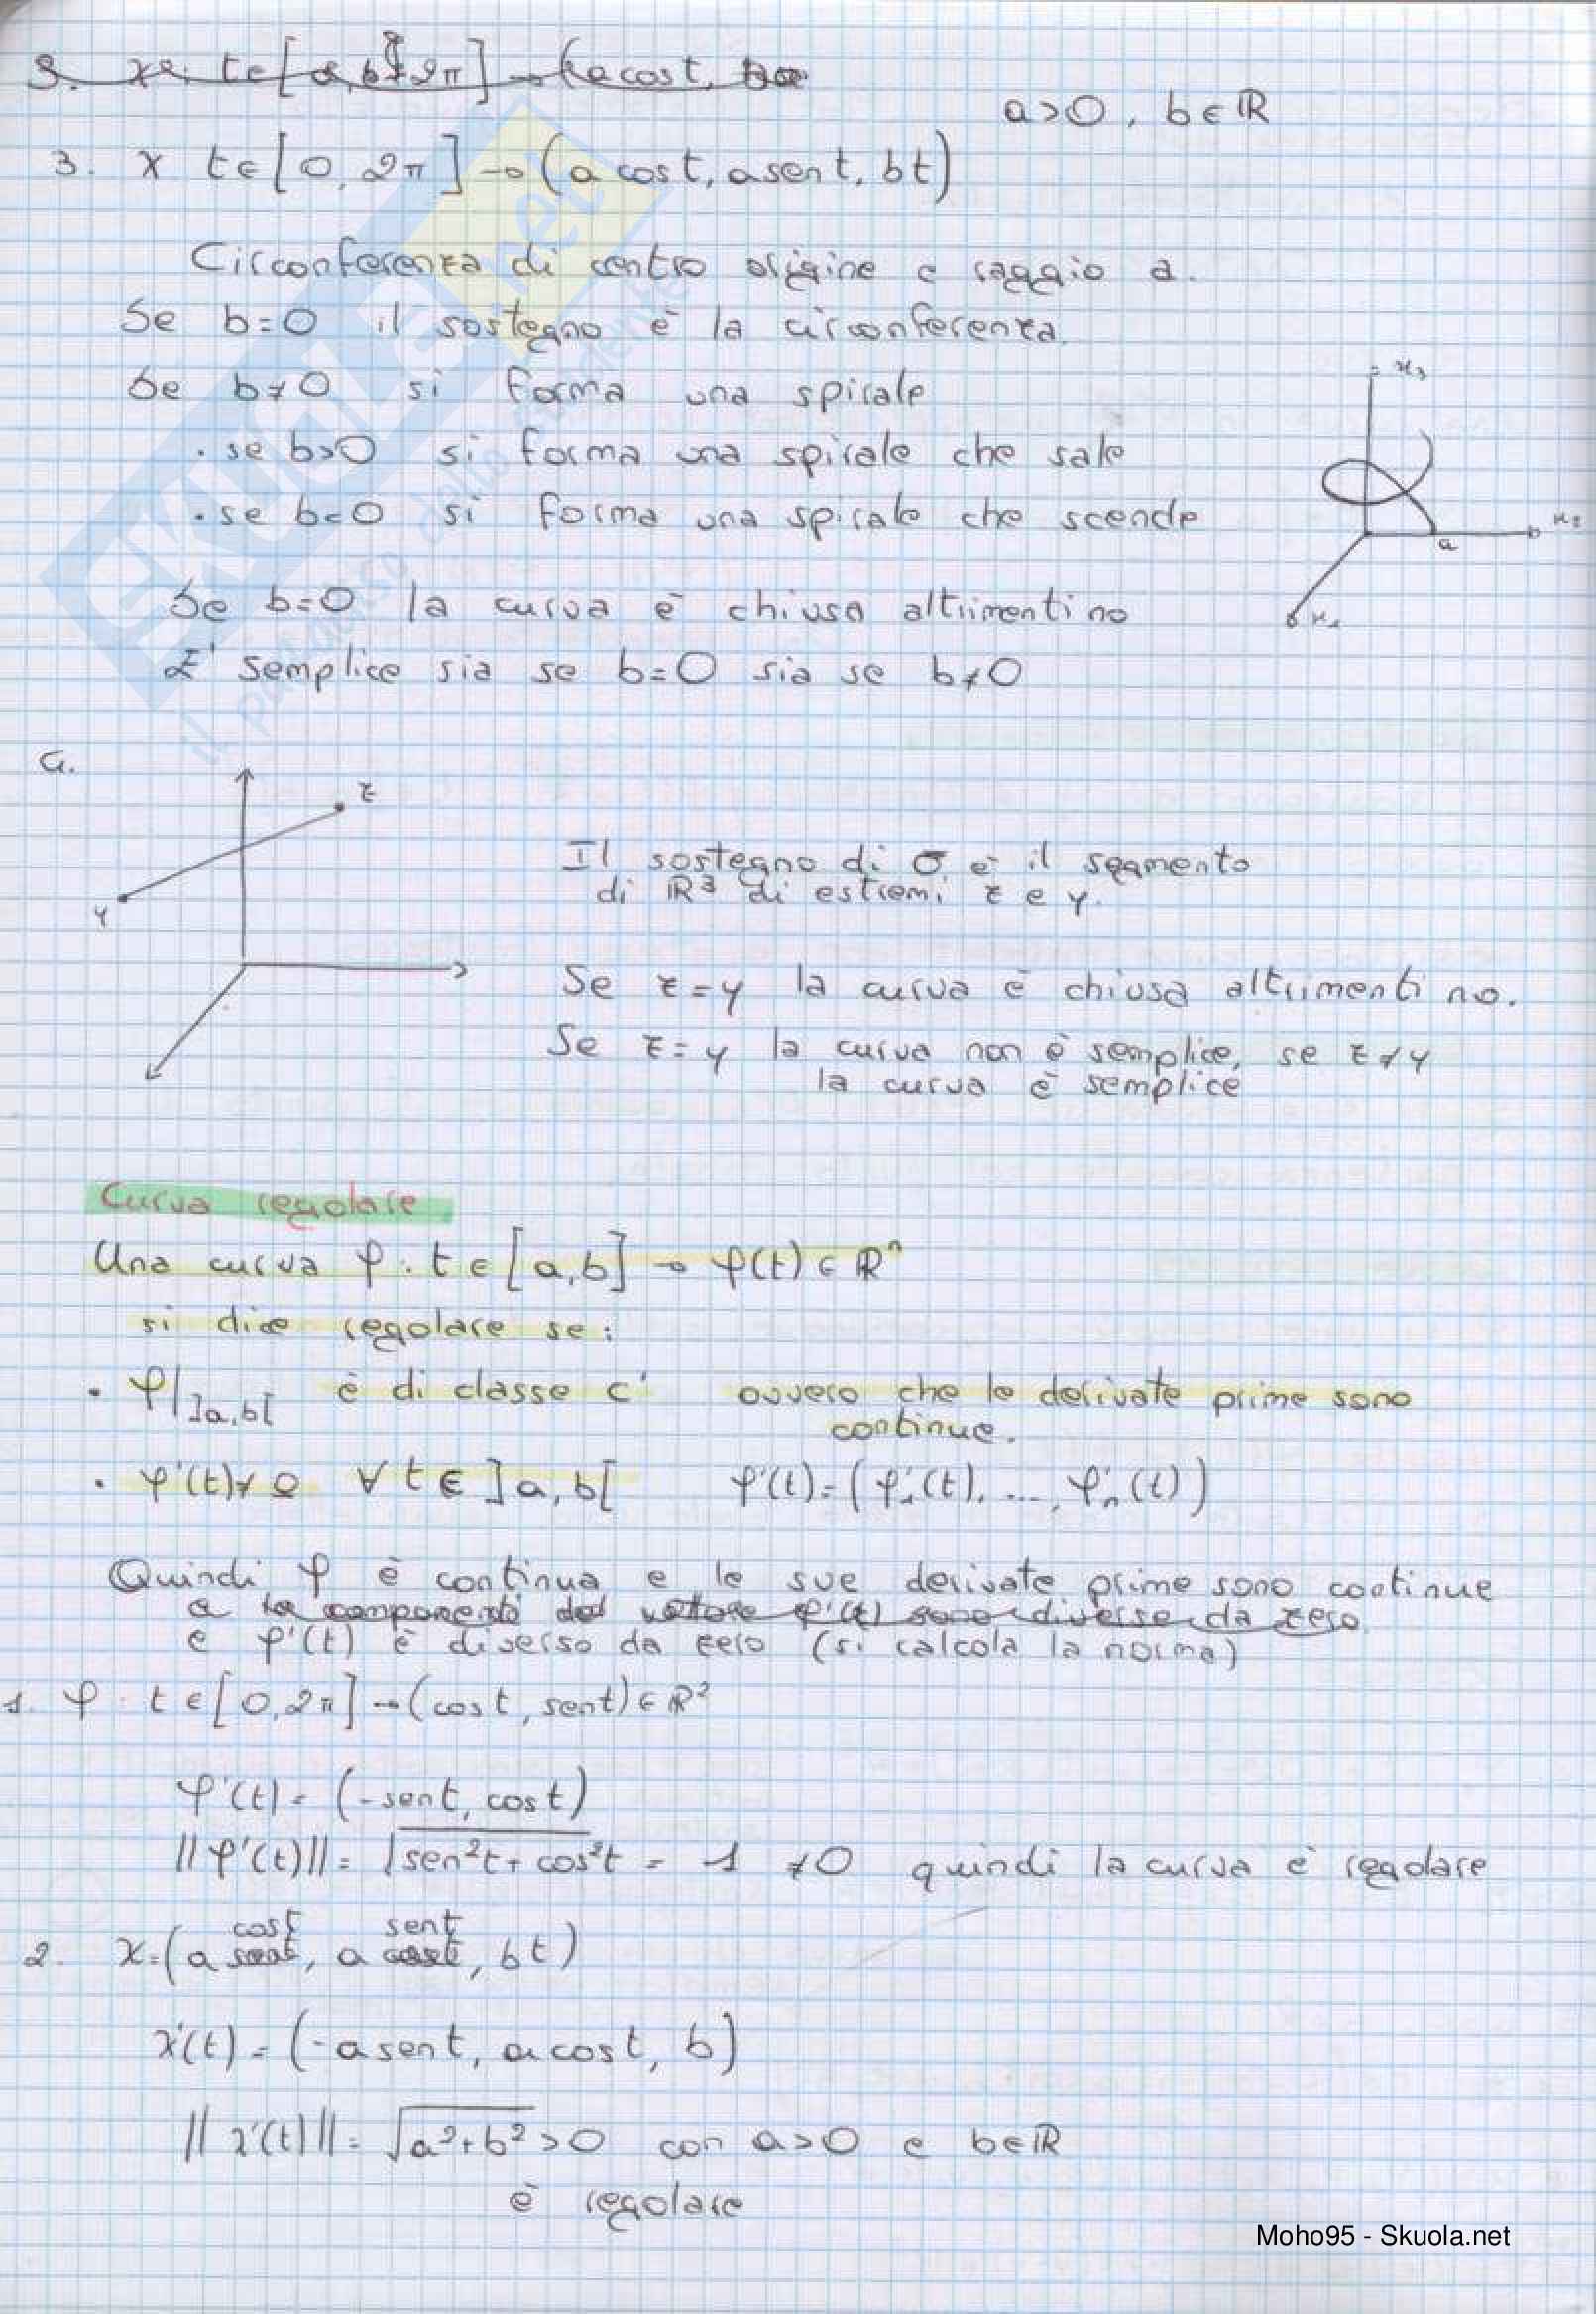 a>0, b∈ℝ
3. χ t∈[0,2π]→(a cost, a sent, bt)
Circonferenza di centro origine e raggio a.
Se b=0 il sostegno è la circonferenza.
Se b≠0 si forma una spirale
· se b>0 si forma una spirale che sale
· se b<0 si forma una spirale che scende
Se b=0 la curva è chiusa altrimenti no
E' semplice sia se b=0 sia se b≠0
x₃
x₂
a
x₁
4.
z
y
Il sostegno di σ è il segmento
di ℝ³ di estremi z e y.
Se z=y la curva è chiusa altrimenti no.
Se z=y la curva non è semplice, se z≠y
la curva è semplice
Curva regolare
Una curva φ: t∈[a,b]→φ(t)∈ℝⁿ
si dice regolare se:
· φ|]a,b[ è di classe C¹ ovvero che le derivate prime sono
continue.
· φ'(t)≠0 ∀t∈]a,b[ φ'(t)=(φ'₁(t), ..., φ'ₙ(t))
Quindi φ è continua e le sue derivate prime sono continue
e le componenti del vettore φ'(t) sono diverse da zero
e φ'(t) è diverso da zero (si calcola la norma)
1. φ: t∈[0,2π]→(cost, sent)∈ℝ²
φ'(t)=(-sent, cost)
||φ'(t)||=√sen²t+cos²t = 1 ≠0 quindi la curva è regolare
2. χ=(a cost, a sent, bt)
χ'(t)=(-a sent, a cost, b)
||χ'(t)||=√a²+b²>0 con a>0 e b∈ℝ
è regolare
Moho95 - Skuola.net
SKUOLA.net